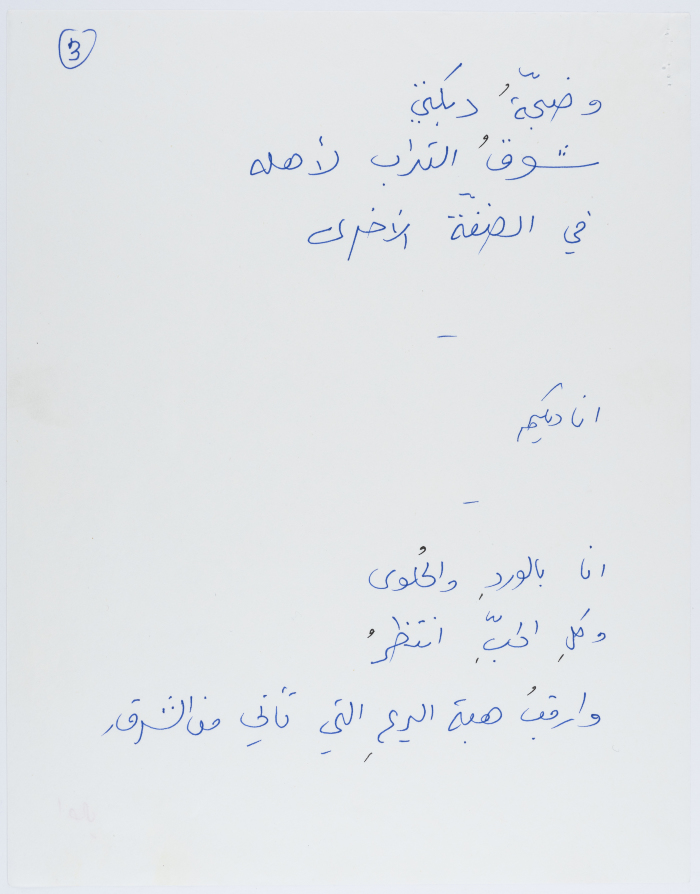 3
وضجّةُ دبكتي
شوقُ التراب لأهله
في الضفّة الأخرى
-
اناديكم
-
انا بالوردِ والحُلوى
وكلِ الحبِّ انتظرُ
وارقبُ هبة الريحِ التي تأتي من الشرق